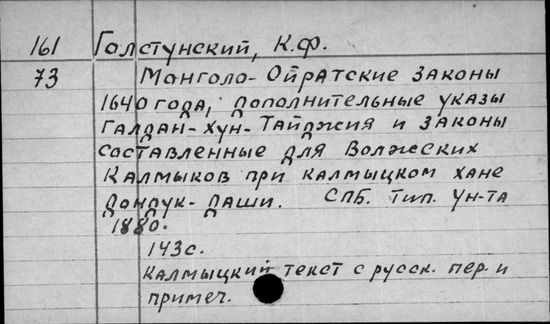 161 Голстунский, К.Ф.
73 Монголо-Ойратские законы
1640 года, дополнительные указы
Галдан-Хун-Тайджия и законы
составленные для Волжских
Калмыков при калмыцком хане
Дондук-Даши. СПб. Тип. Ун-та
1880.
143с.
Калмыцкий текст с русск. пер. и
примеч.